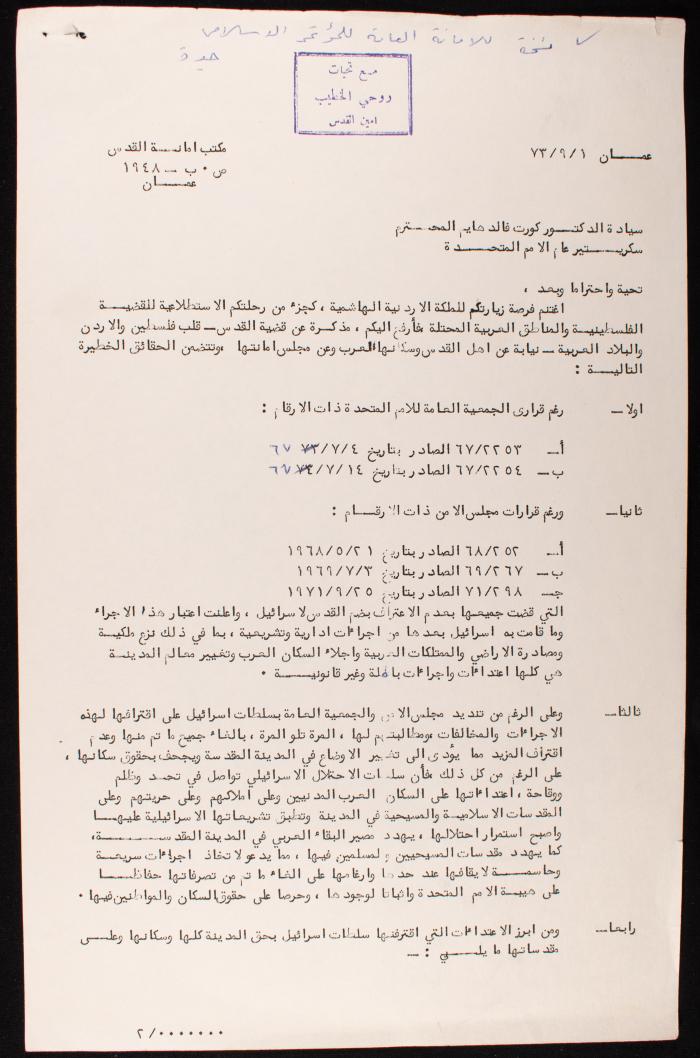 نسخة للامانة العامة للمؤتمر الاسلامي
جدة
مع تحيات
روحي الخطيب
امين القدس
عمـــان ٧٣/٩/١
مكتب امانـة القدس
ص ٠ ب ــ ١٩٤٨
عمـــان
سيادة الدكتـور كورت فالدهايم المحـترم
سكرـتير عام الامم المتحــدة
تحية واحتراما وبعد ،
اغتنم فرصة زيارتكم للملكة الاردنية الهاشمية ، كجزء من رحلتكم الاستطلاعية للقضيـة
الفلسطينيـة والمناطق العربية المحتلة فأرفع اليكم ، مذكرة عن قضية القدس ــ قلب فلسطين والاردن
والبلاد العربية ــ نيابة عن اهل القدس وسكانها العرب وعن مجلس امانتها ، وتتضمن الحقائق الخطيرة
التاليــة :
اولا ــ رغم قرارى الجمعية العامة للامم المتحدة ذات الارقام :
أ ــ ٦٧/٢٢٥٣ الصادر بتاريخ ٧/٤/ ٦٧
ب ــ ٦٧/٢٢٥٤ الصادر بتاريخ ٧/١٤/ ٦٧
ثانيا ــ ورغم قرارات مجلس الامن ذات الارقــام :
أ ــ ٦٨/٢٥٢ الصادر بتاريخ ١٩٦٨/٥/٢١
ب ــ ٦٩/٢٦٧ الصادر بتاريخ ١٩٦٩/٧/٣
جـ ــ ٧١/٢٩٨ الصادر بتاريخ ١٩٧١/٩/٢٥
التي قضت جميعها بعدم الاعتراف بضم القدس لاسرائيل ، واعلنت اعتبار هذا الاجراء
وما قامت به اسرائيل بعدها من اجراءات ادارية وتشريعية ، بما في ذلك نزع ملكية
ومصادرة الاراضي والممتلكات العربية واجلاء السكان العرب وتغيير معالم المدينـة
هي كلها اعتداءات واجراءات باطلة وغير قانونيــة ٠
ثالثا ــ وعلى الرغم من تنديد مجلس الامن والجمعية العامة بسلطات اسرائيل على اقترافها لهذه
الاجراءات والمخالفات ،ومطالبتهم لها ، المرة تلو المرة ، بالغاء جميع ما تم منها وعدم
اقتراف المزيد مما يؤدى الى تغيير الاوضاع في المدينة المقدسة ويجحف بحقوق سكانها ،
على الرغم من كل ذلك ،فأن سلطات الاحتلال الاسرائيلي تواصل في تحمد وظلم
ووقاحة ، اعتداءاتها على السكان العرب المدنيين وعلى املاكهم وعلى حريتهم وعلى
المقدسات الاسلاميـة والمسيحية في المدينة وتطبق تشريعاتها الاسرائيلية عليهـا
واصبح استمرار احتلالها ، يهدد مصير البقاء العربي في المدينة المقدســة،
كما يهدد مقدسات المسيحيين والمسلمين فيها ، مما يدعو لاتخاذ اجراءات سريعة
وحاسمــة لايقافها عند حدها وارغامها على الغاء ما تم من تصرفاتها حفاظـا
على هيبة الامم المتحدة واثباتا لوجودها ، وحرصا على حقوق السكان والمواطنين فيها ٠
رابعا ــ ومن ابرز الاعتداءات التي اقترفتها سلطات اسرائيل بحق المدينة كلها وسكانها وعلـى
مقدساتها ما يلــي : ــ
٢/٠٠٠٠٠٠٠